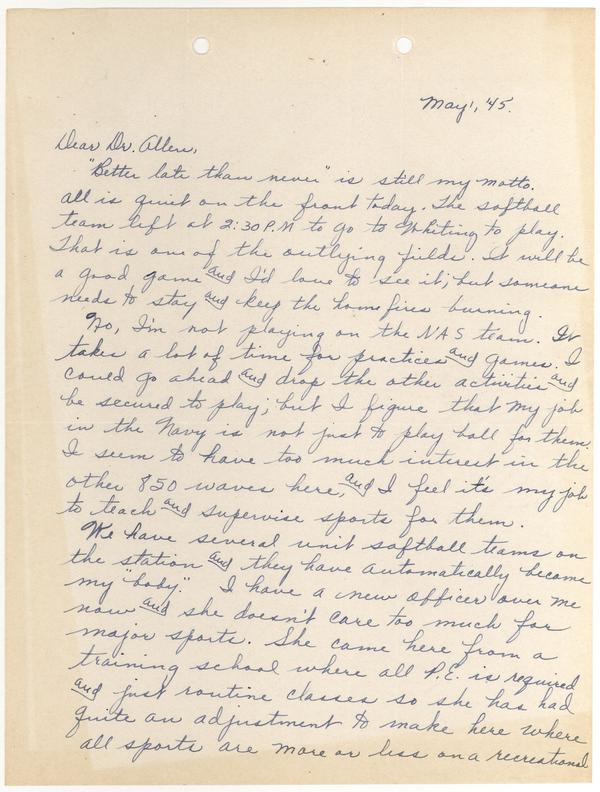 May 1, '45.
Dear Dr. Allen,
"Better late than never" is still my motto.
All is quiet on the front today. The softball
team left at 2:30 P.M to go to Whiting to play.
That is one of the outlying fields. It will be
a good game and I'd love to see it; but someone
needs to stay and keep the home fires burning.
No, I'm not playing on the NAS team. It
takes a lot of time for practices and games. I
could go ahead and drop the other activities and
be secured to play; but I figure that my job
in the Navy is not just to play ball for them.
I seem to have too much interest in the
other 850 waves here, and I feel it's my job
to teach and supervise sports for them.
We have several unit softball teams on
the station and they have automatically become
my "baby." I have a new officer over me
now and she doesn't care too much for
major sports. She came here from a
training school where all P.E. is required
and just routine classes so she has had
quite an adjustment to make here where
all sports are more or less on a recreational